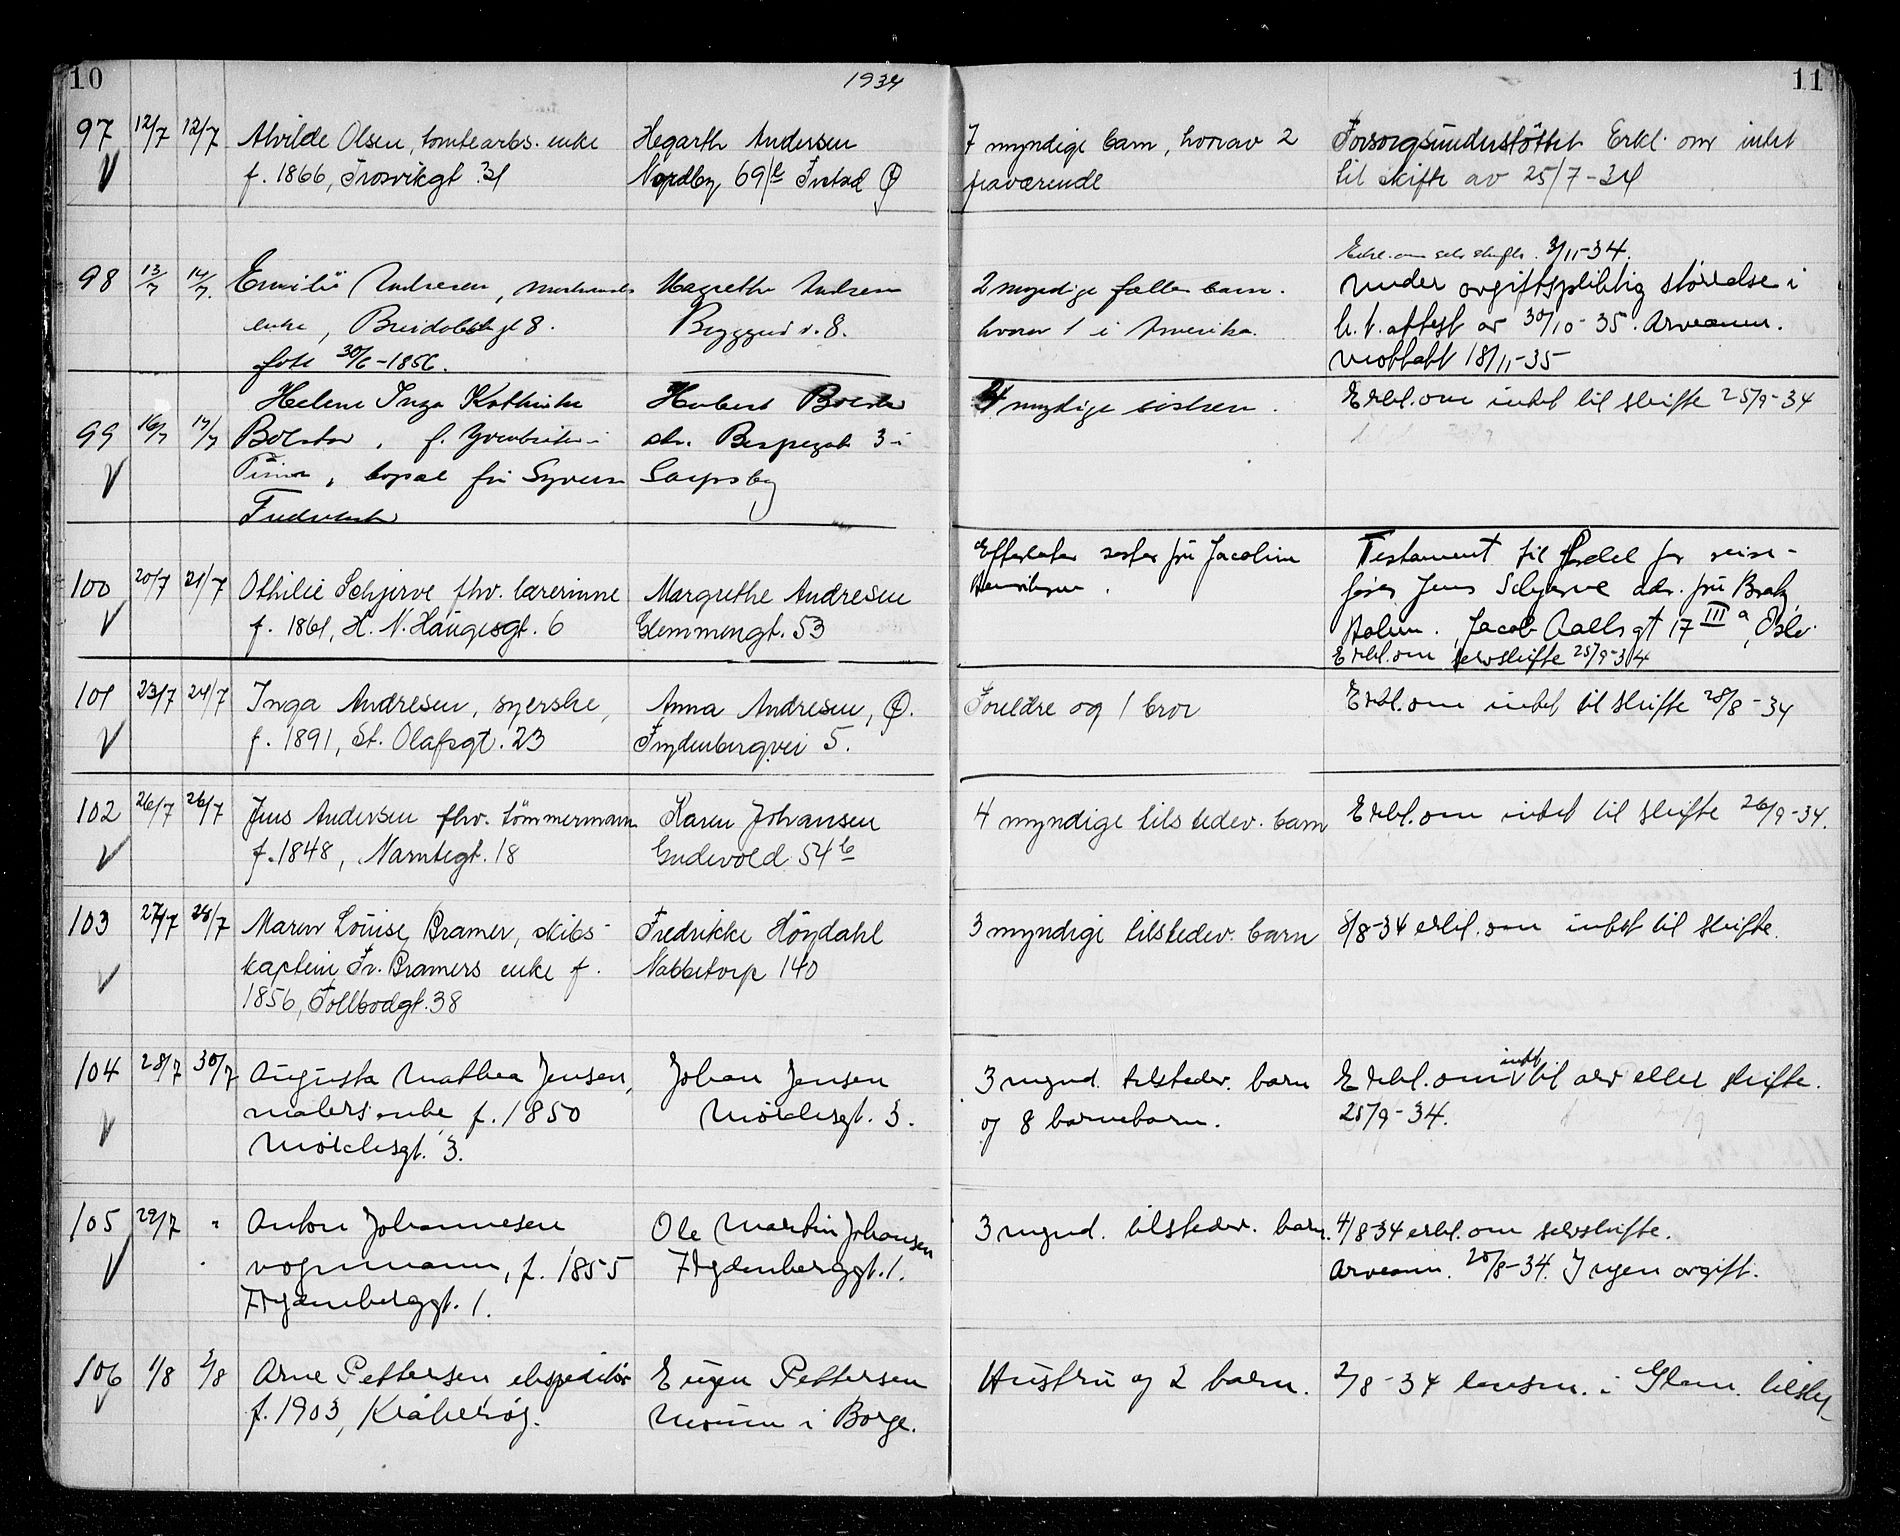 10
1934
11
97 12/7 12/7 Alvilde Olsen, tomtearbs. enke Hegarth Andersen 7 myndige barn, hvorav 2 Forsorgsunderstöttet Erkl. om intet
f. 1866, Trosvikgt. 31 Nordby, 69 Q fraværende til skifte av 25/7-34
Erkl. om selvskifte. 3/11-34.
98 13/7 14/7. Emilie Andresen, Margrethe Andresen 2 myndige felles barn. under avgiftspliktig störrelse i
enke, 8. Byggeriv. 8. hvorav 1 i Amerika. h.t. attest av 30/10-35. Arveanm.
född 30/6-1856. mottatt 18/11-35
Helene Inga Kathinka 4 myndige söstre. Erkl. om intet til skifte 25/9-34
99 16/7 17/7 f. i 3 i
bopæl Sarpsborg
Fredrikstad
Efterlater söster fru Jacobine Testament til fordel for reise-
100 20/7 21/7 Othilie Schjerve fhv. lærerinne Margrethe Andresen Henriksen. förer Jens Schjerve adr. fru
f. 1861, H. N. Haugesgt. 6 Glemmengt. 53 Jacob Aallsgt 17 III a, Oslo.
Erkl. om selvskifte 25/9-34
101 23/7 24/7 Inga Andresen, syerske, Anna Andresen, Q. Foreldre og 1 bror Erkl. om intet til skifte 28/8-34
f. 1891, St. Olafsgt. 23 Frydenbergvei 5.
102 26/7 26/7 Jens Andersen fhv. tömmermann Karen Johansen 4 myndige tilstedev. barn Erkl. om intet til skifte 26/9-34.
f. 1848, Narntegt. 18 Gudevold 54 b
103 27/7 28/7 Maren Louise Bramer, skibs- Fredrikke Höydahl 3 myndige tilstedev. barn 8/8-34 erkl. om intet til skifte.
kaptein Fr. Bramers enke f. Nabbetorp 140
1856, Tollbodgt. 38
104 28/7 30/7 Augusta Mathea Jensen, Johan Jensen 3 mynd. tilstedev. barn Erkl. om intet til arv eller skifte.
malers enke, f. 1850 gt. 3. og 8 barnebarn. 25/9-34.
gt. 3.
105 29/7 " Anton Johannesen Ole Martin Johansen 3 mynd. tilstedev. barn. 4/8-34 erkl. om selvskifte.
vognmann, f. 1855 Frydenberggt. 1. Arveanm. 20/8-34. Ingen avgift.
Frydenberggt. 1.
106 1/8 2/8 Arne Pettersen ekspeditör Eugen Pettersen Hustru og 2 barn. 2/8-34 lensm. i Glem. tilskr.
f. 1903, Kråkeröy. Moum i Borge.